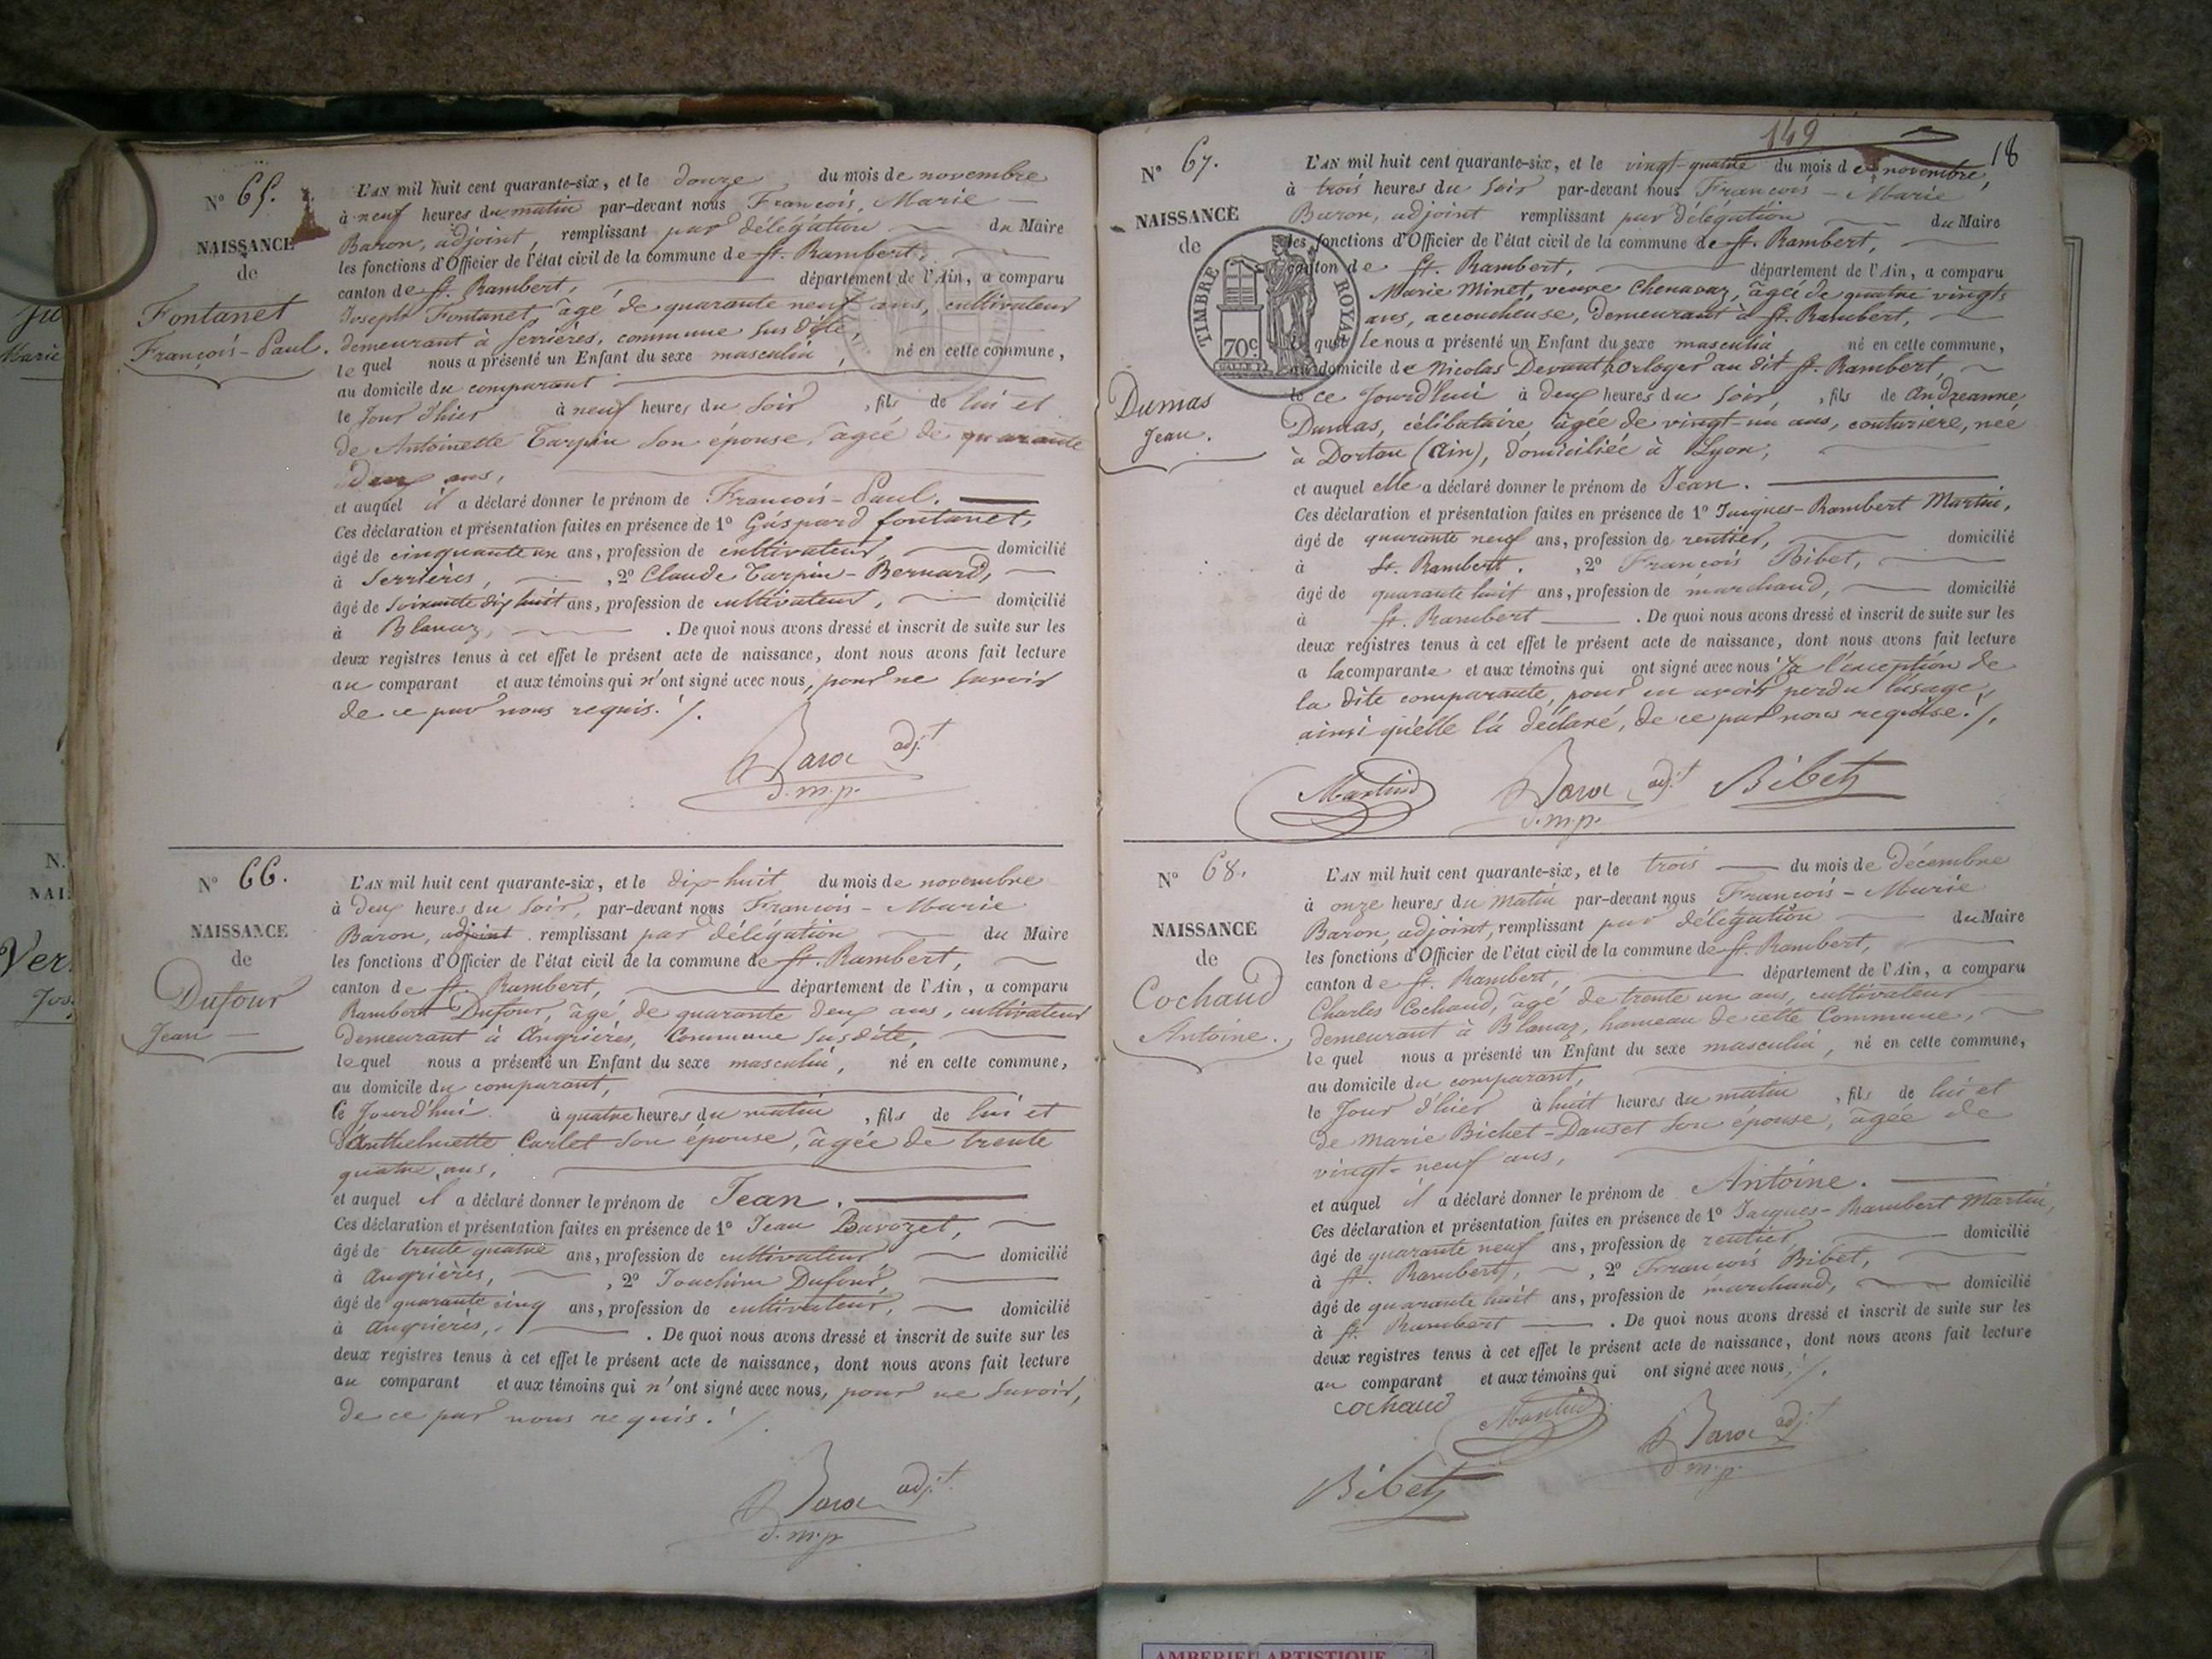 N° 65.
NAISSANCE
de
Fontanet
François-Paul.
L'AN mil huit cent quarante-six, et le douze du mois de novembre
à neuf heures du matin par-devant nous François, Marie
Baron, adjoint, remplissant par délégation du Maire
les fonctions d'Officier de l'état civil de la commune de St. Rambert,
canton de St. Rambert, département de l'Ain, a comparu
Joseph Fontanet, âgé de quarante neuf ans, cultivateur
demeurant à Serrières, commune susdite,
lequel nous a présenté un Enfant du sexe masculin, né en cette commune,
au domicile du comparant
le jour d'hier à neuf heures du soir, fils de lui et
de Antoinette Tarpin son épouse, âgée de quarante
deux ans,
et auquel il a déclaré donner le prénom de François-Paul.
Ces déclaration et présentation faites en présence de 1° Gaspard fontanet,
âgé de cinquante un ans, profession de cultivateur, domicilié
à Serrières, , 2° Claude Tarpin-Bernard,
âgé de soixante dix huit ans, profession de cultivateur, domicilié
à Blanaz, . De quoi nous avons dressé et inscrit de suite sur les
deux registres tenus à cet effet le présent acte de naissance, dont nous avons fait lecture
au comparant et aux témoins qui n'ont signé avec nous, pour ne savoir
de ce par nous requis. /.
Baron adj.t
d. m. p.
N° 66.
NAISSANCE
de
Dufour
Jean
L'AN mil huit cent quarante-six, et le dix-huit du mois de novembre
à deux heures du soir, par-devant nous François-Marie
Baron, adjoint remplissant par délégation du Maire
les fonctions d'Officier de l'état civil de la commune de St. Rambert,
canton de St. Rambert, département de l'Ain, a comparu
Rambert Dufour, âgé de quarante deux ans, cultivateur
demeurant à Angrières, Commune susdite,
lequel nous a présenté un Enfant du sexe masculin, né en cette commune,
au domicile du comparant,
le jourd'hui à quatre heures du matin, fils de lui et
d'Anthelmette Carlet son épouse, âgée de trente
quatre ans,
et auquel il a déclaré donner le prénom de Jean.
Ces déclaration et présentation faites en présence de 1° Jean Bavozet,
âgé de trente quatre ans, profession de cultivateur, domicilié
à Angrières, , 2° Joachim Dufour,
âgé de quarante cinq ans, profession de cultivateur, domicilié
à Angrières, . De quoi nous avons dressé et inscrit de suite sur les
deux registres tenus à cet effet le présent acte de naissance, dont nous avons fait lecture
au comparant et aux témoins qui n'ont signé avec nous, pour ne savoir,
de ce par nous requis. /.
Baron adj.t
d. m. p.
149
18
N° 67.
NAISSANCE
de
TIMBRE ROYAL
70c
Dumas
Jean.
L'AN mil huit cent quarante-six, et le vingt-quatre du mois de novembre,
à trois heures du soir par-devant nous François-Marie
Baron, adjoint remplissant par délégation du Maire
les fonctions d'Officier de l'état civil de la commune de St. Rambert,
canton de St. Rambert, département de l'Ain, a comparu
Marie Minet, veuve Chenavaz, âgée de quatre vingts
ans, accoucheuse, demeurant à St. Rambert,
quelle nous a présenté un Enfant du sexe masculin, né en cette commune,
au domicile de Nicolas Devant horloger au dit St. Rambert,
le ce jourd'hui à deux heures du soir, , fils de Andréanne,
Dumas, célibataire, âgée de vingt-un ans, couturière, née
à Dortan (Ain), domiciliée à Lyon,
et auquel elle a déclaré donner le prénom de Jean.
Ces déclaration et présentation faites en présence de 1° Jacques-Rambert Martin,
âgé de quarante neuf ans, profession de rentier, domicilié
à St. Rambert. , 2° François Bibet,
âgé de quarante huit ans, profession de marchand, domicilié
à St. Rambert . De quoi nous avons dressé et inscrit de suite sur les
deux registres tenus à cet effet le présent acte de naissance, dont nous avons fait lecture
a la comparante et aux témoins qui ont signé avec nous à l'exception de
la dite comparante, pour en avoir perdu l'usage,
ainsi qu'elle l'a déclaré, de ce par nous requise. /.
Martin Baron adj.t Bibet
d. m. p.
N° 68.
NAISSANCE
de
Cochaud
Antoine.
L'AN mil huit cent quarante-six, et le trois du mois de décembre
à onze heures du matin par-devant nous François-Marie
Baron, adjoint, remplissant par délégation du Maire
les fonctions d'Officier de l'état civil de la commune de St. Rambert,
canton de St. Rambert, département de l'Ain, a comparu
Charles Cochaud, âgé de trente un ans, cultivateur
demeurant à Blanaz, hameau de cette Commune,
lequel nous a présenté un Enfant du sexe masculin, né en cette commune,
au domicile du comparant,
le jour d'hier à huit heures du matin, fils de lui et
de Marie Bichet-Danset son épouse, âgée de
vingt-neuf ans,
et auquel il a déclaré donner le prénom de Antoine.
Ces déclaration et présentation faites en présence de 1° Jacques-Rambert Martin,
âgé de quarante neuf ans, profession de rentier, domicilié
à St. Rambert, , 2° François Bibet,
âgé de quarante huit ans, profession de marchand, domicilié
à St. Rambert . De quoi nous avons dressé et inscrit de suite sur les
deux registres tenus à cet effet le présent acte de naissance, dont nous avons fait lecture
au comparant et aux témoins qui ont signé avec nous, /.
Cochaud Martin Baron adj.t
d. m. p.
Bibet
AMBERIEU ARTISTIQUE